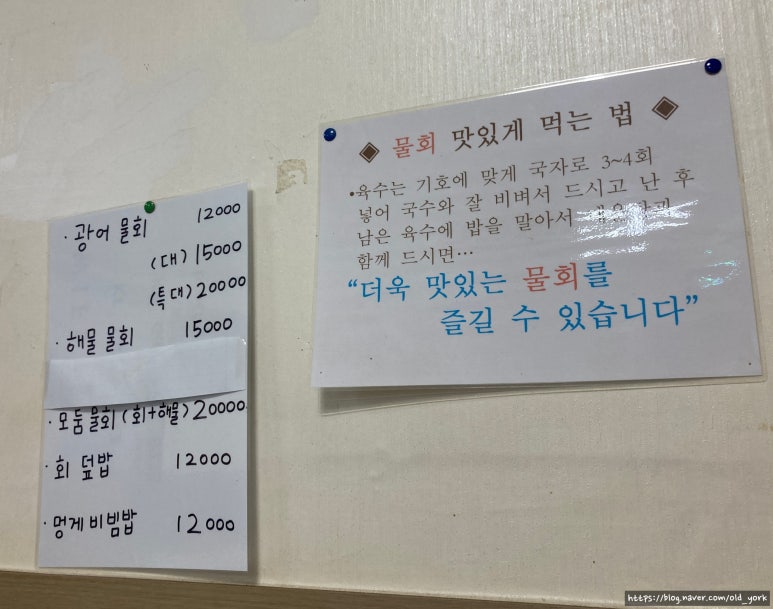 · 광어 물회 12000
(대) 15000
(특대) 20000
· 해물 물회 15000
· 모둠물회 (회+해물) 20000
· 회 덮밥 12000
· 멍게비빔밥 12000
◈ 물회 맛있게 먹는 법 ◈
•육수는 기호에 맞게 국자로 3~4회
넣어 국수와 잘 비벼서 드시고 난 후
남은 육수에 밥을 말아서
함께 드시면…
“더욱 맛있는 물회를
즐길 수 있습니다”
https://blog.naver.com/old_york